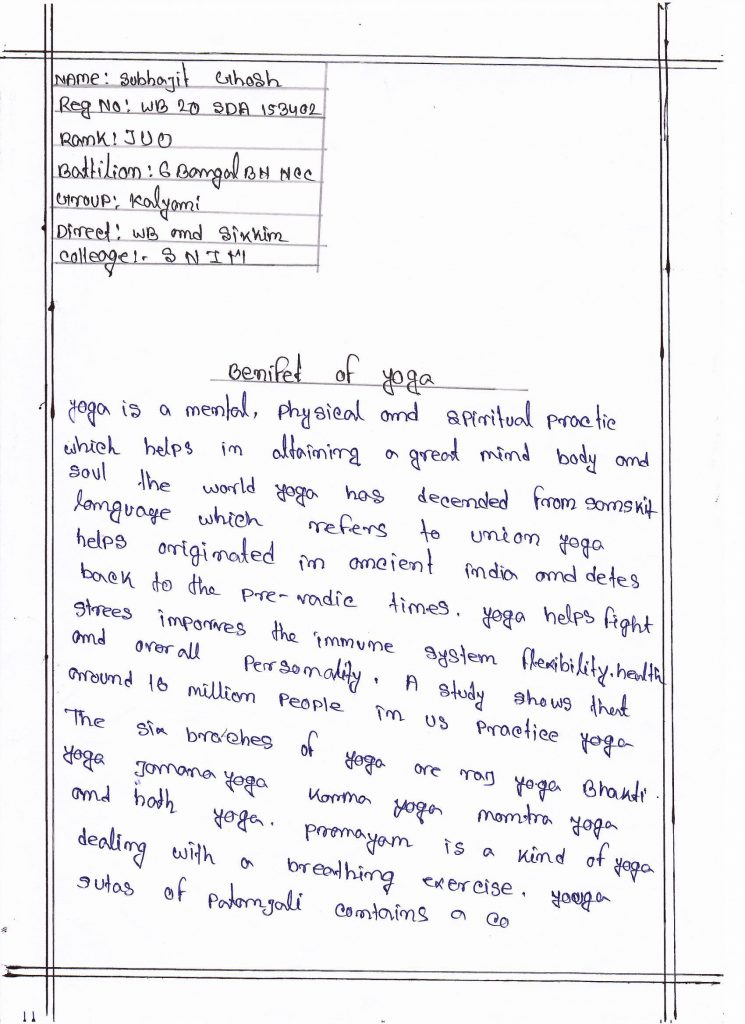 Name: Subhajit Ghosh
Reg No: WB 20 SDA 153402
Rank: JUO
Battilion: 6 Bangal BN NCC
Group: Kalyani
Direct: WB and Sikkim
Colleage:- S N I M
Benifet of yoga
yoga is a mental, physical and spiritual practic
which helps in attaining a great mind body and
soul the world yoga has decended from sanskit
language which refers to union yoga
helps originated in ancient india and detes
back to the pre-vadic times. yoga helps fight
strees imporves the immune system flexibility.health
and over all personality. A study shows that
around 16 million people in us practice yoga
The six braches of yoga are raj yoga Bhakti.
yoga Janana yoga Karma yoga mantra yoga
and hath yoga. pranayam is a kind of yoga
dealing with a breathing exercise. yooga
sutas of patangali contains a co
11